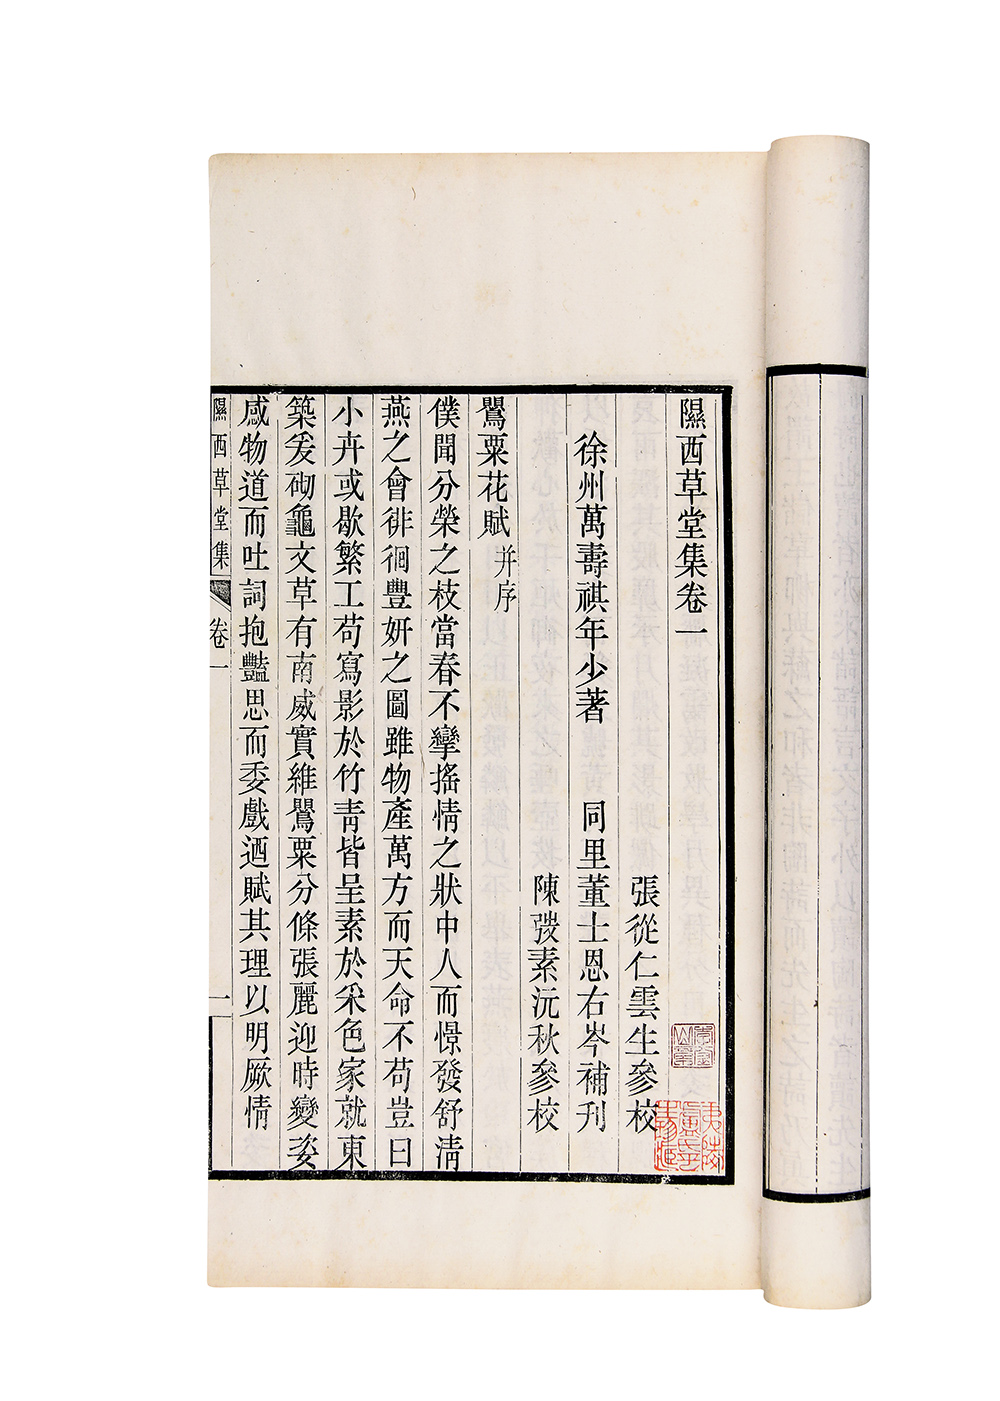 隰西草堂集卷一
張從仁雲生參校
徐州萬壽祺年少著　同里董士恩右岑補刊
陳㢸素沅秋參校
罌粟花賦 并序
僕聞分榮之枝當春不攣搖情之狀中人而憬發舒清
燕之會徘徊豐妍之圖雖物產萬方而天命不苟豈曰
小卉或歇繁工苟寫影於竹青皆呈素於釆色家就東
築爰砌龜文草有南威實維罌粟分條張麗迎時變姿
感物道而吐詞抱豔思而委戲迺賦其理以明厥情
隰西草堂集　卷一　一